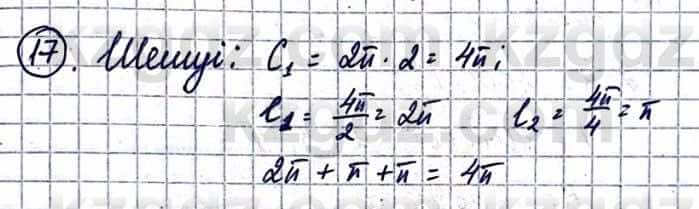 17. Шешуі: C₁ = 2π · 2 = 4π;
l₁ = 4π/2 = 2π l₂ = 4π/4 = π
2π + π + π = 4π